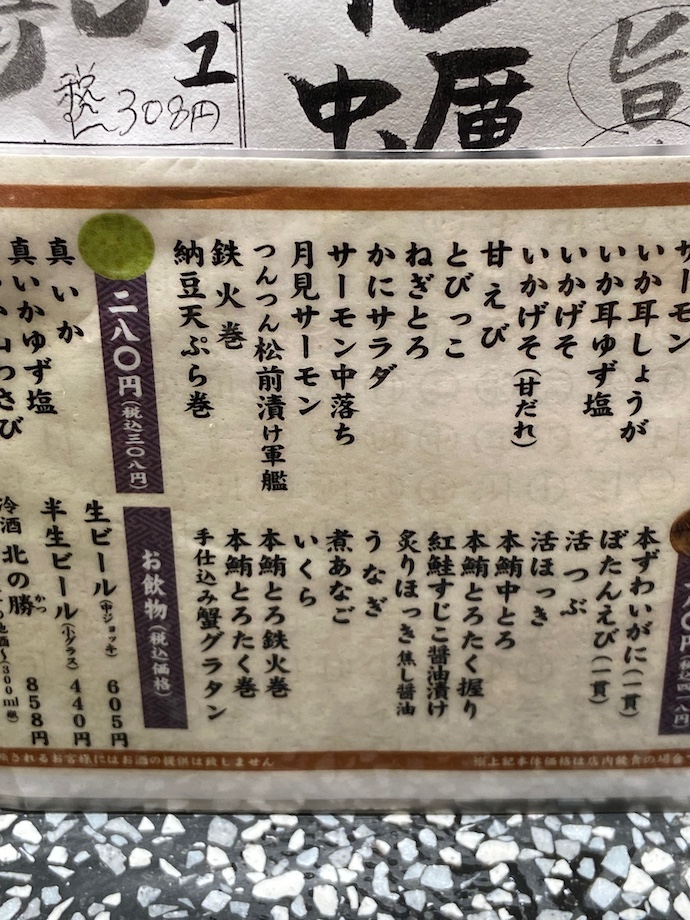 税 308円
中
旨
サーモン
いか耳しょうが
いか耳ゆず塩
いかげそ
いかげそ(甘だれ)
甘えび
とびっこ
ねぎとろ
かにサラダ
サーモン中落ち
月見サーモン
つんつん松前漬け軍艦
鉄火巻
納豆天ぷら巻
二八〇円(税込三〇八円)
真いか
真いかゆず塩
わさび
円(税込四一八円)
本ずわいがに(一貫)
ぼたんえび(一貫)
活つぶ
活ほっき
本鮪中とろ
本鮪とろたく握り
紅鮭すじこ醤油漬け
炙りほっき 焦し醤油
うなぎ
煮あなご
いくら
本鮪とろ鉄火巻
本鮪とろたく巻
手仕込み蟹グラタン
お飲物(税込価格)
生ビール(中ジョッキ) 605円
半生ビール(小グラス) 440円
冷酒 北の勝 かつ 地酒 (300ml 瓶) 858円
※上記本体価格は店内飲食の場合
されるお客様にはお酒の提供は致しません